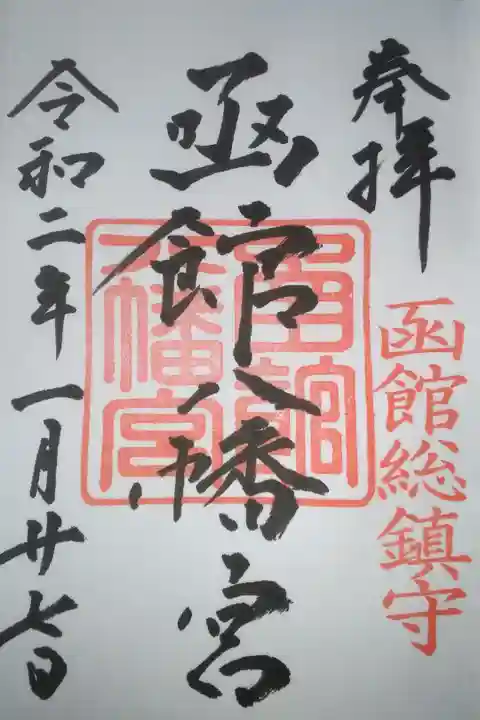 奉拝
函館総鎮守
函館八幡宮
函館
八幡宮
令和二年一月廿七日